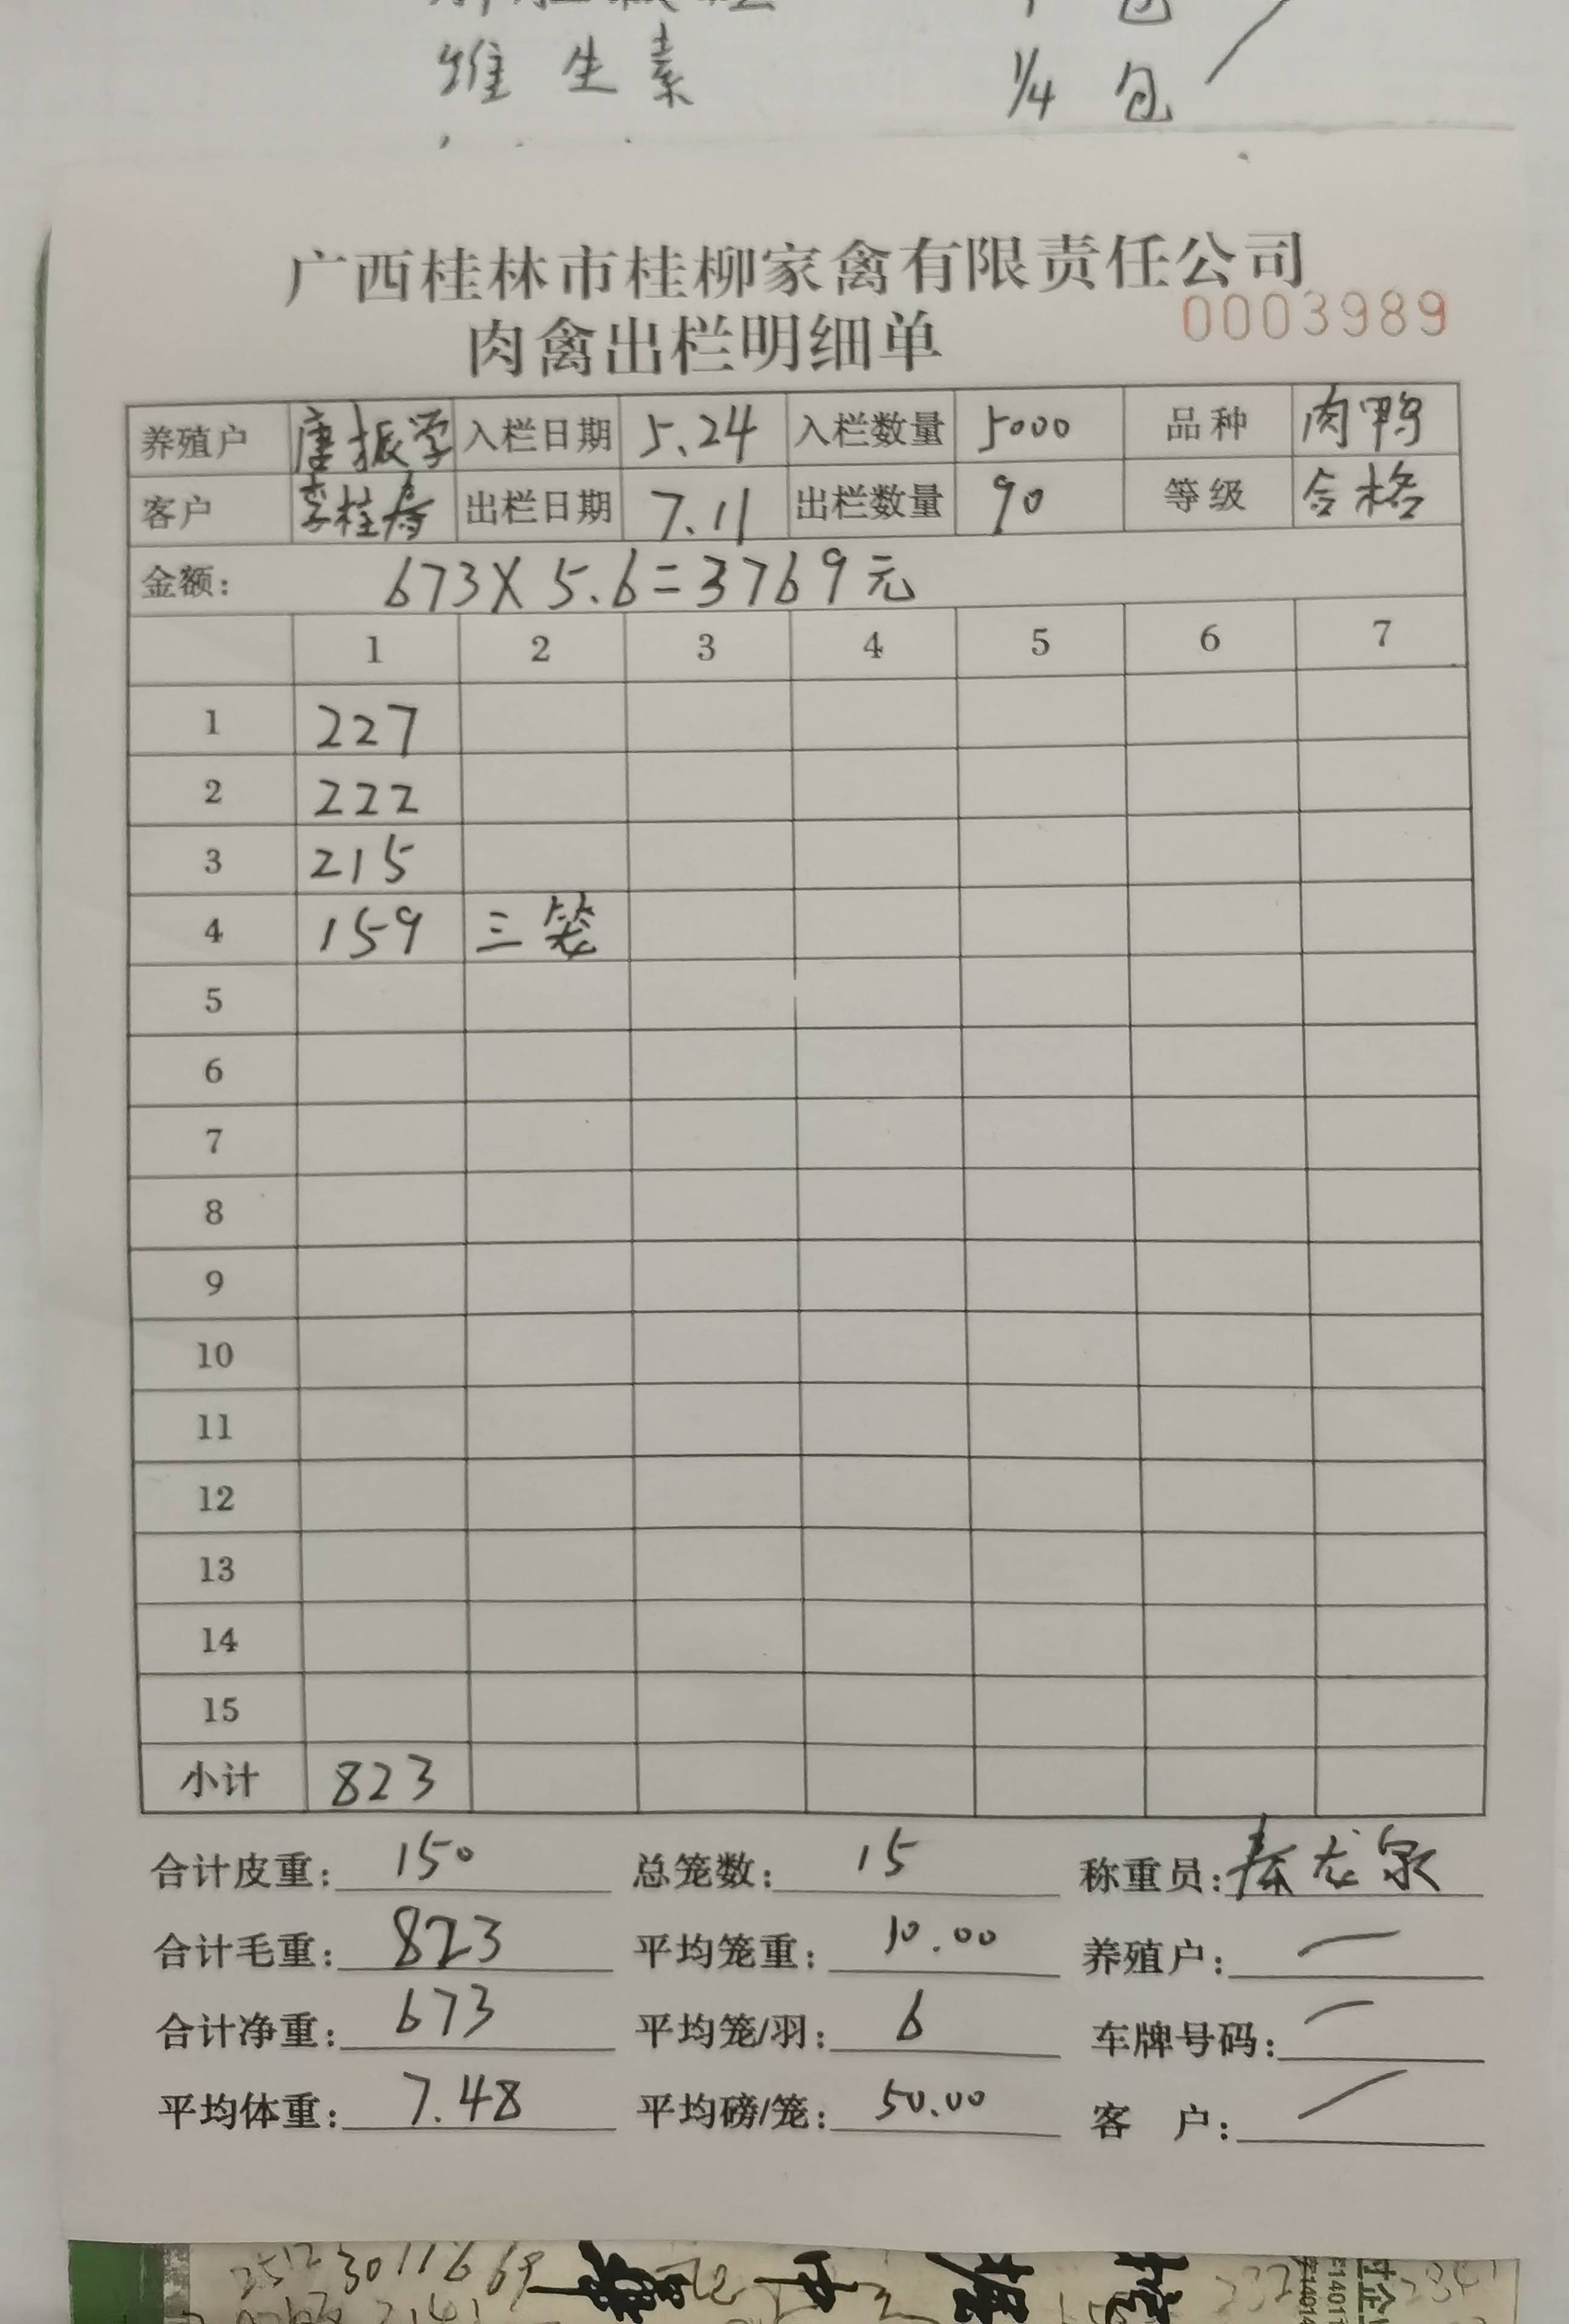 维生素 1/4 包
广西桂林市桂柳家禽有限责任公司
0003989
肉禽出栏明细单
养殖户 唐振学 入栏日期 5.24 入栏数量 5000 品种 肉鸭
客户 李桂寿 出栏日期 7.11 出栏数量 90 等级 合格
金额: 673X5.6=3769元
1 2 3 4 5 6 7
1 227
2 222
3 215
4 159 三笼
5
6
7
8
9
10
11
12
13
14
15
小计 823
合计皮重: 150 总笼数: 15 称重员: 秦龙泉
合计毛重: 823 平均笼重: 10.00 养殖户:
合计净重: 673 平均笼/羽: 6 车牌号码:
平均体重: 7.48 平均磅/笼: 50.00 客 户: